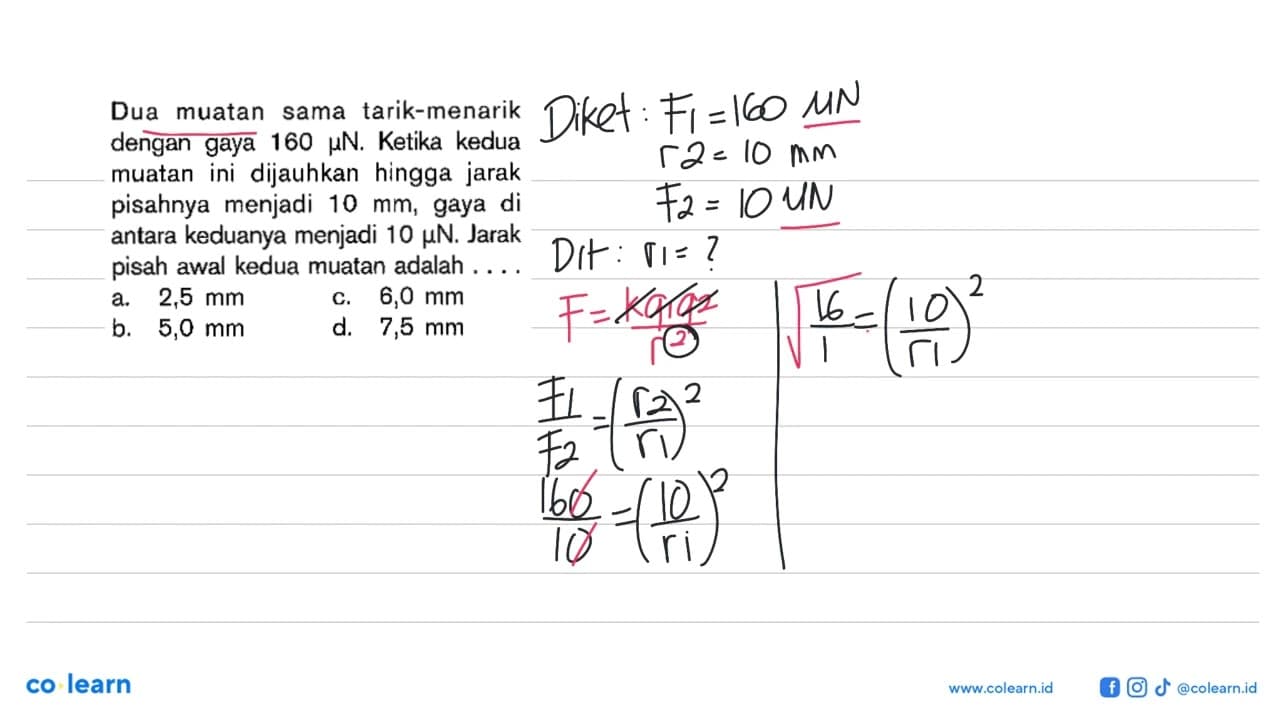 Dua muatan sama tarik-menarik
dengan gaya 160 μN. Ketika kedua
muatan ini dijauhkan hingga jarak
pisahnya menjadi 10 mm, gaya di
antara keduanya menjadi 10 μN. Jarak
pisah awal kedua muatan adalah . . . .
a. 2,5 mm c. 6,0 mm
b. 5,0 mm d. 7,5 mm
Diket : F1 = 160 μN
r2 = 10 mm
F2 = 10 μN
Dit : r1 = ?
F = kq1q2
r2
F1 = (r2)2
F2 r1
160 = (10)2
10 r1
√16 = (10)2
1 r1
co learn
www.colearn.id
@colearn.id